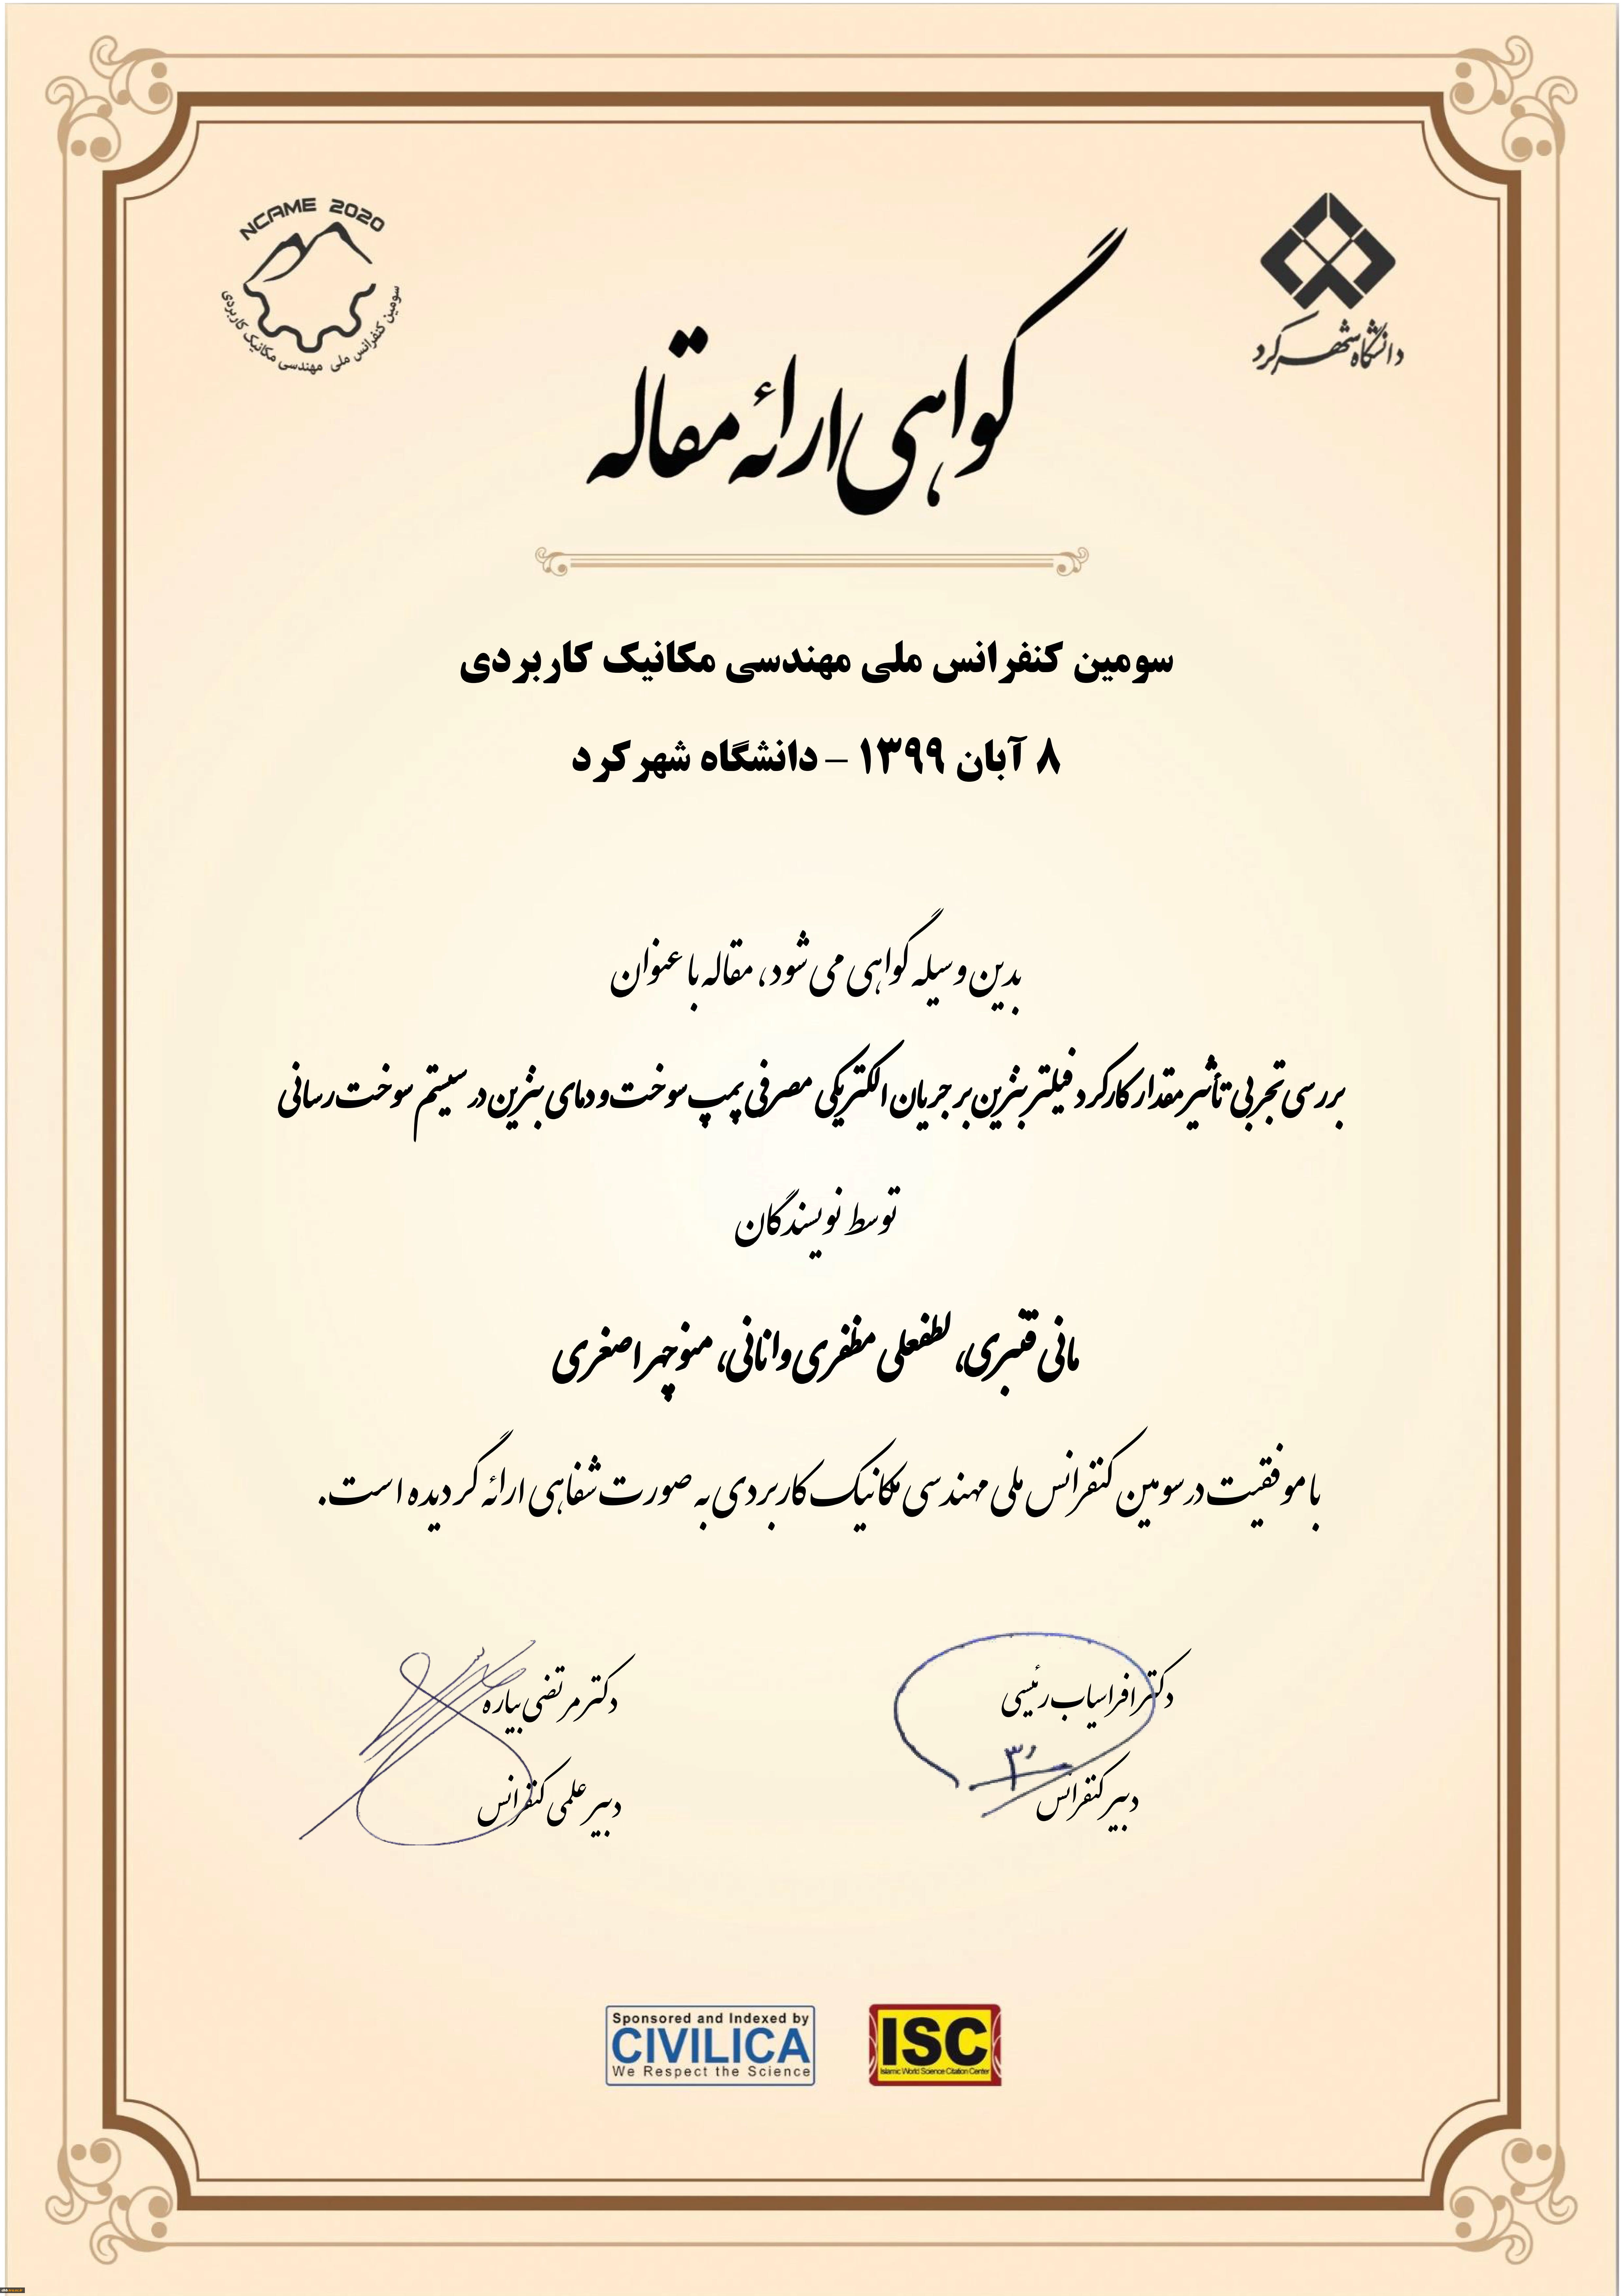 NCAME 2020
سومین کنفرانس ملی مهندسی مکانیک کاربردی
دانشگاه شهرکرد
گواهی ارائه مقاله
سومین کنفرانس ملی مهندسی مکانیک کاربردی
۸ آبان ۱۳۹۹ – دانشگاه شهرکرد
بدین وسیله گواهی می شود، مقاله با عنوان
بررسی تجربی تأثیر مقدار کارکرد فیلتر بنزین بر جریان الکتریکی مصرفی پمپ سوخت و دمای بنزین در سیستم سوخت رسانی
توسط نویسندگان
مانی قنبری، لطفعلی مظفری وانانی، منوچهر اصغری
با موفقیت در سومین کنفرانس ملی مهندسی مکانیک کاربردی به صورت شفاهی ارائه گردیده است.
دکتر افراسیاب رئیسی
دبیر کنفرانس
دکتر مرتضی بیاره
دبیر علمی کنفرانس
Sponsored and Indexed by
CIVILICA
We Respect the Science
ISC
Islamic World Science Citation Center